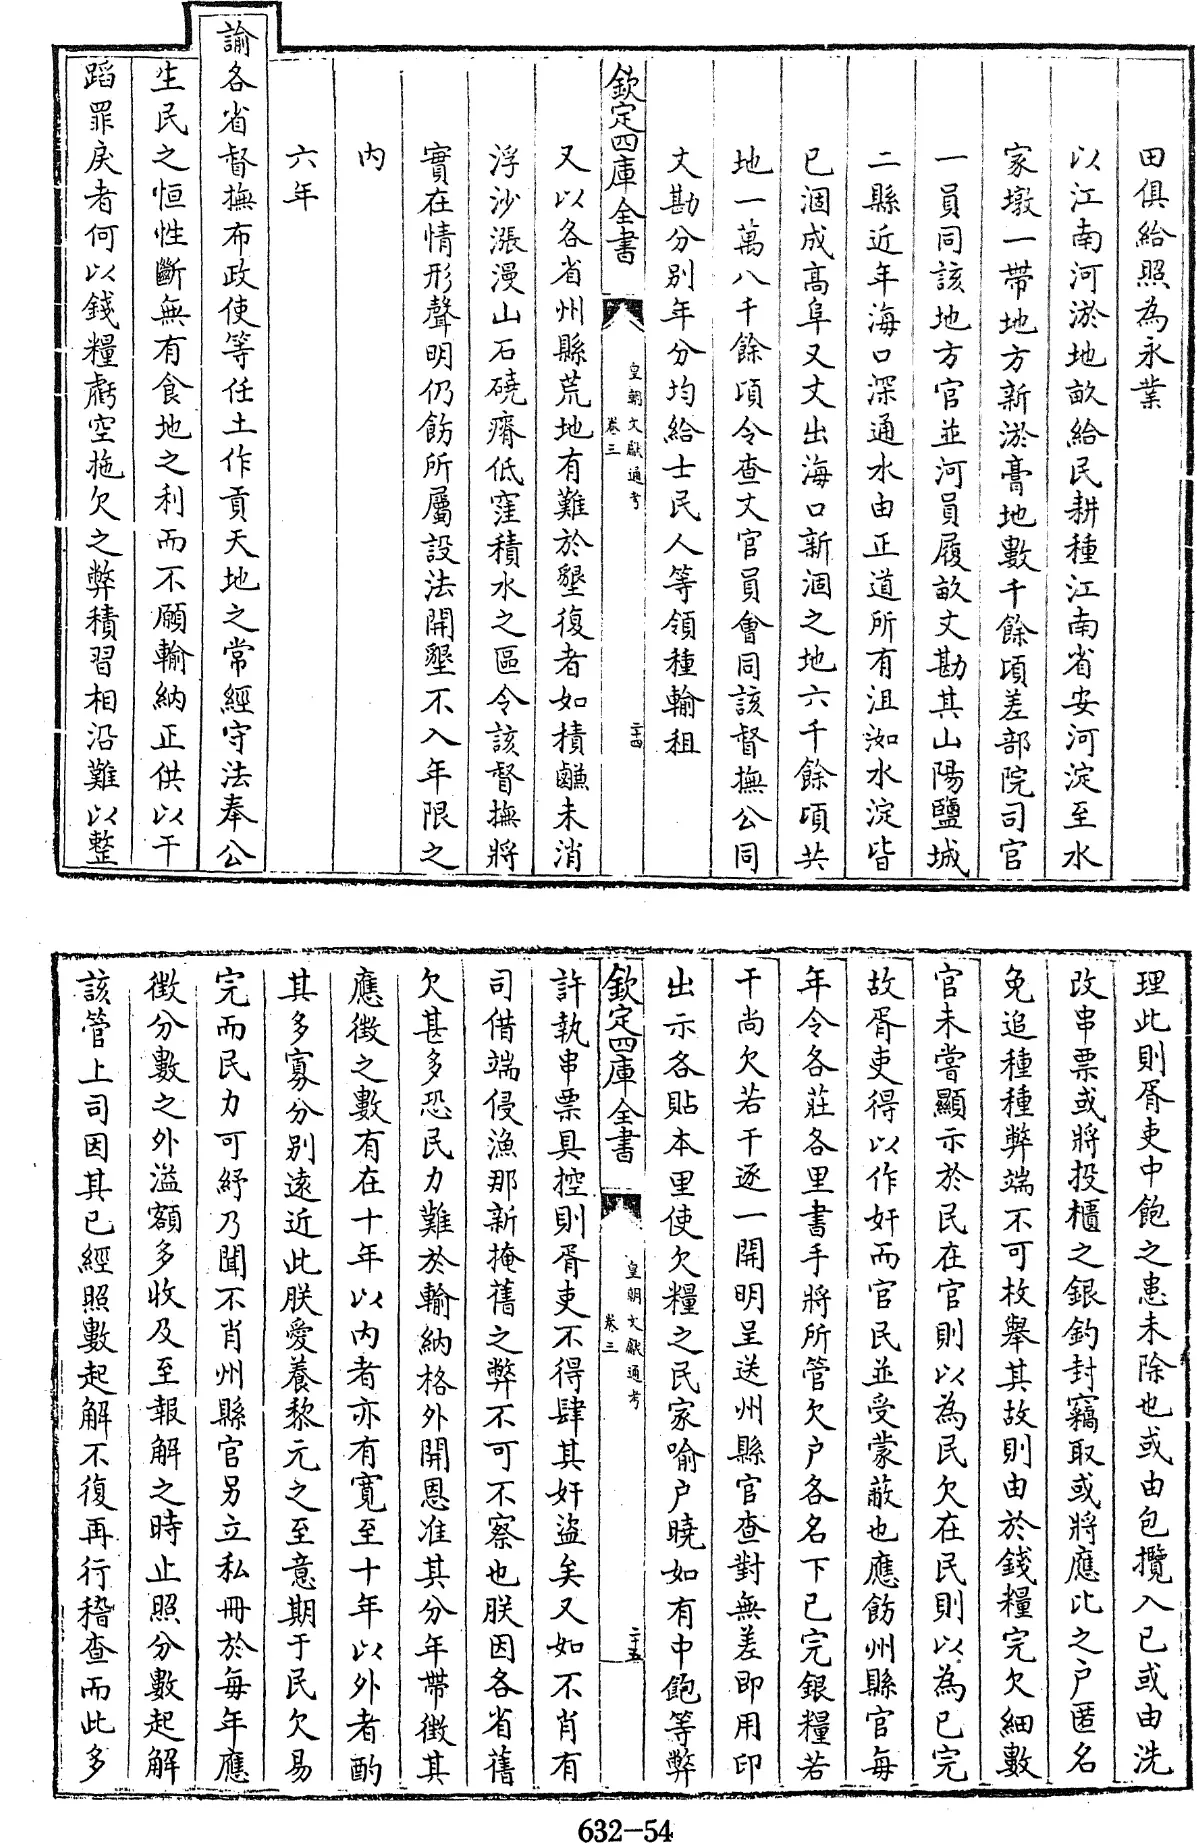 田俱給照為永業
以江南河淤地畝給民耕種江南省安河淀至水
家墩一帶地方新淤膏地數千餘頃差部院司官
一員同該地方官並河員履畝丈勘其山陽鹽城
二縣近年海口深通水由正道所有沮洳水淀皆
已涸成高阜又丈出海口新涸之地六千餘頃共
地一萬八千餘頃令查丈官員會同該督撫公同
丈勘分別年分均給士民人等領種輸租
欽定四庫全書
皇朝文獻通考
卷三
二十四
又以各省州縣荒地有難於墾復者如積鹻未消
浮沙漲漫山石磽瘠低窪積水之區令該督撫將
實在情形聲明仍飭所屬設法開墾不入年限之
内
六年
諭各省督撫布政使等任土作貢天地之常經守法奉公
生民之恒性斷無有食地之利而不願輸納正供以干
蹈罪戾者何以錢糧虧空拖欠之弊積習相沿難以整
理此則胥吏中飽之患未除也或由包攬入已或由洗
改串票或將投櫃之銀鈞封竊取或將應比之户匿名
免追種種弊端不可枚舉其故則由於錢糧完欠細數
官未嘗顯示於民在官則以為民欠在民則以為已完
故胥吏得以作奸而官民並受蒙蔽也應飭州縣官每
年令各莊各里書手將所管欠户各名下已完銀糧若
干尚欠若干逐一開明呈送州縣官查對無差即用印
出示各貼本里使欠糧之民家喻户曉如有中飽等弊
欽定四庫全書
皇朝文獻通考
卷三
二十五
許執串票具控則胥吏不得肆其奸盜矣又如不肖有
司借端侵漁那新掩舊之弊不可不察也朕因各省舊
欠甚多恐民力難於輸納格外開恩准其分年帶徵其
應徵之數有在十年以内者亦有寬至十年以外者酌
其多寡分别遠近此朕愛養黎元之至意期于民欠易
完而民力可紓乃聞不肖州縣官另立私冊於每年應
徵分數之外溢額多收及至報解之時止照分數起解
該管上司因其已經照數起解不復再行稽查而此多
632-54